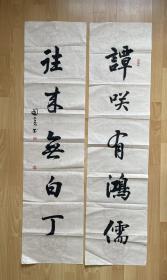 譚咲有鴻儒
往来無白丁